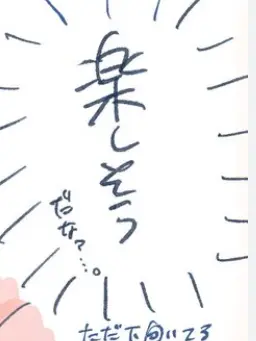 楽しそう
だなァ…。
ただ下向いてる